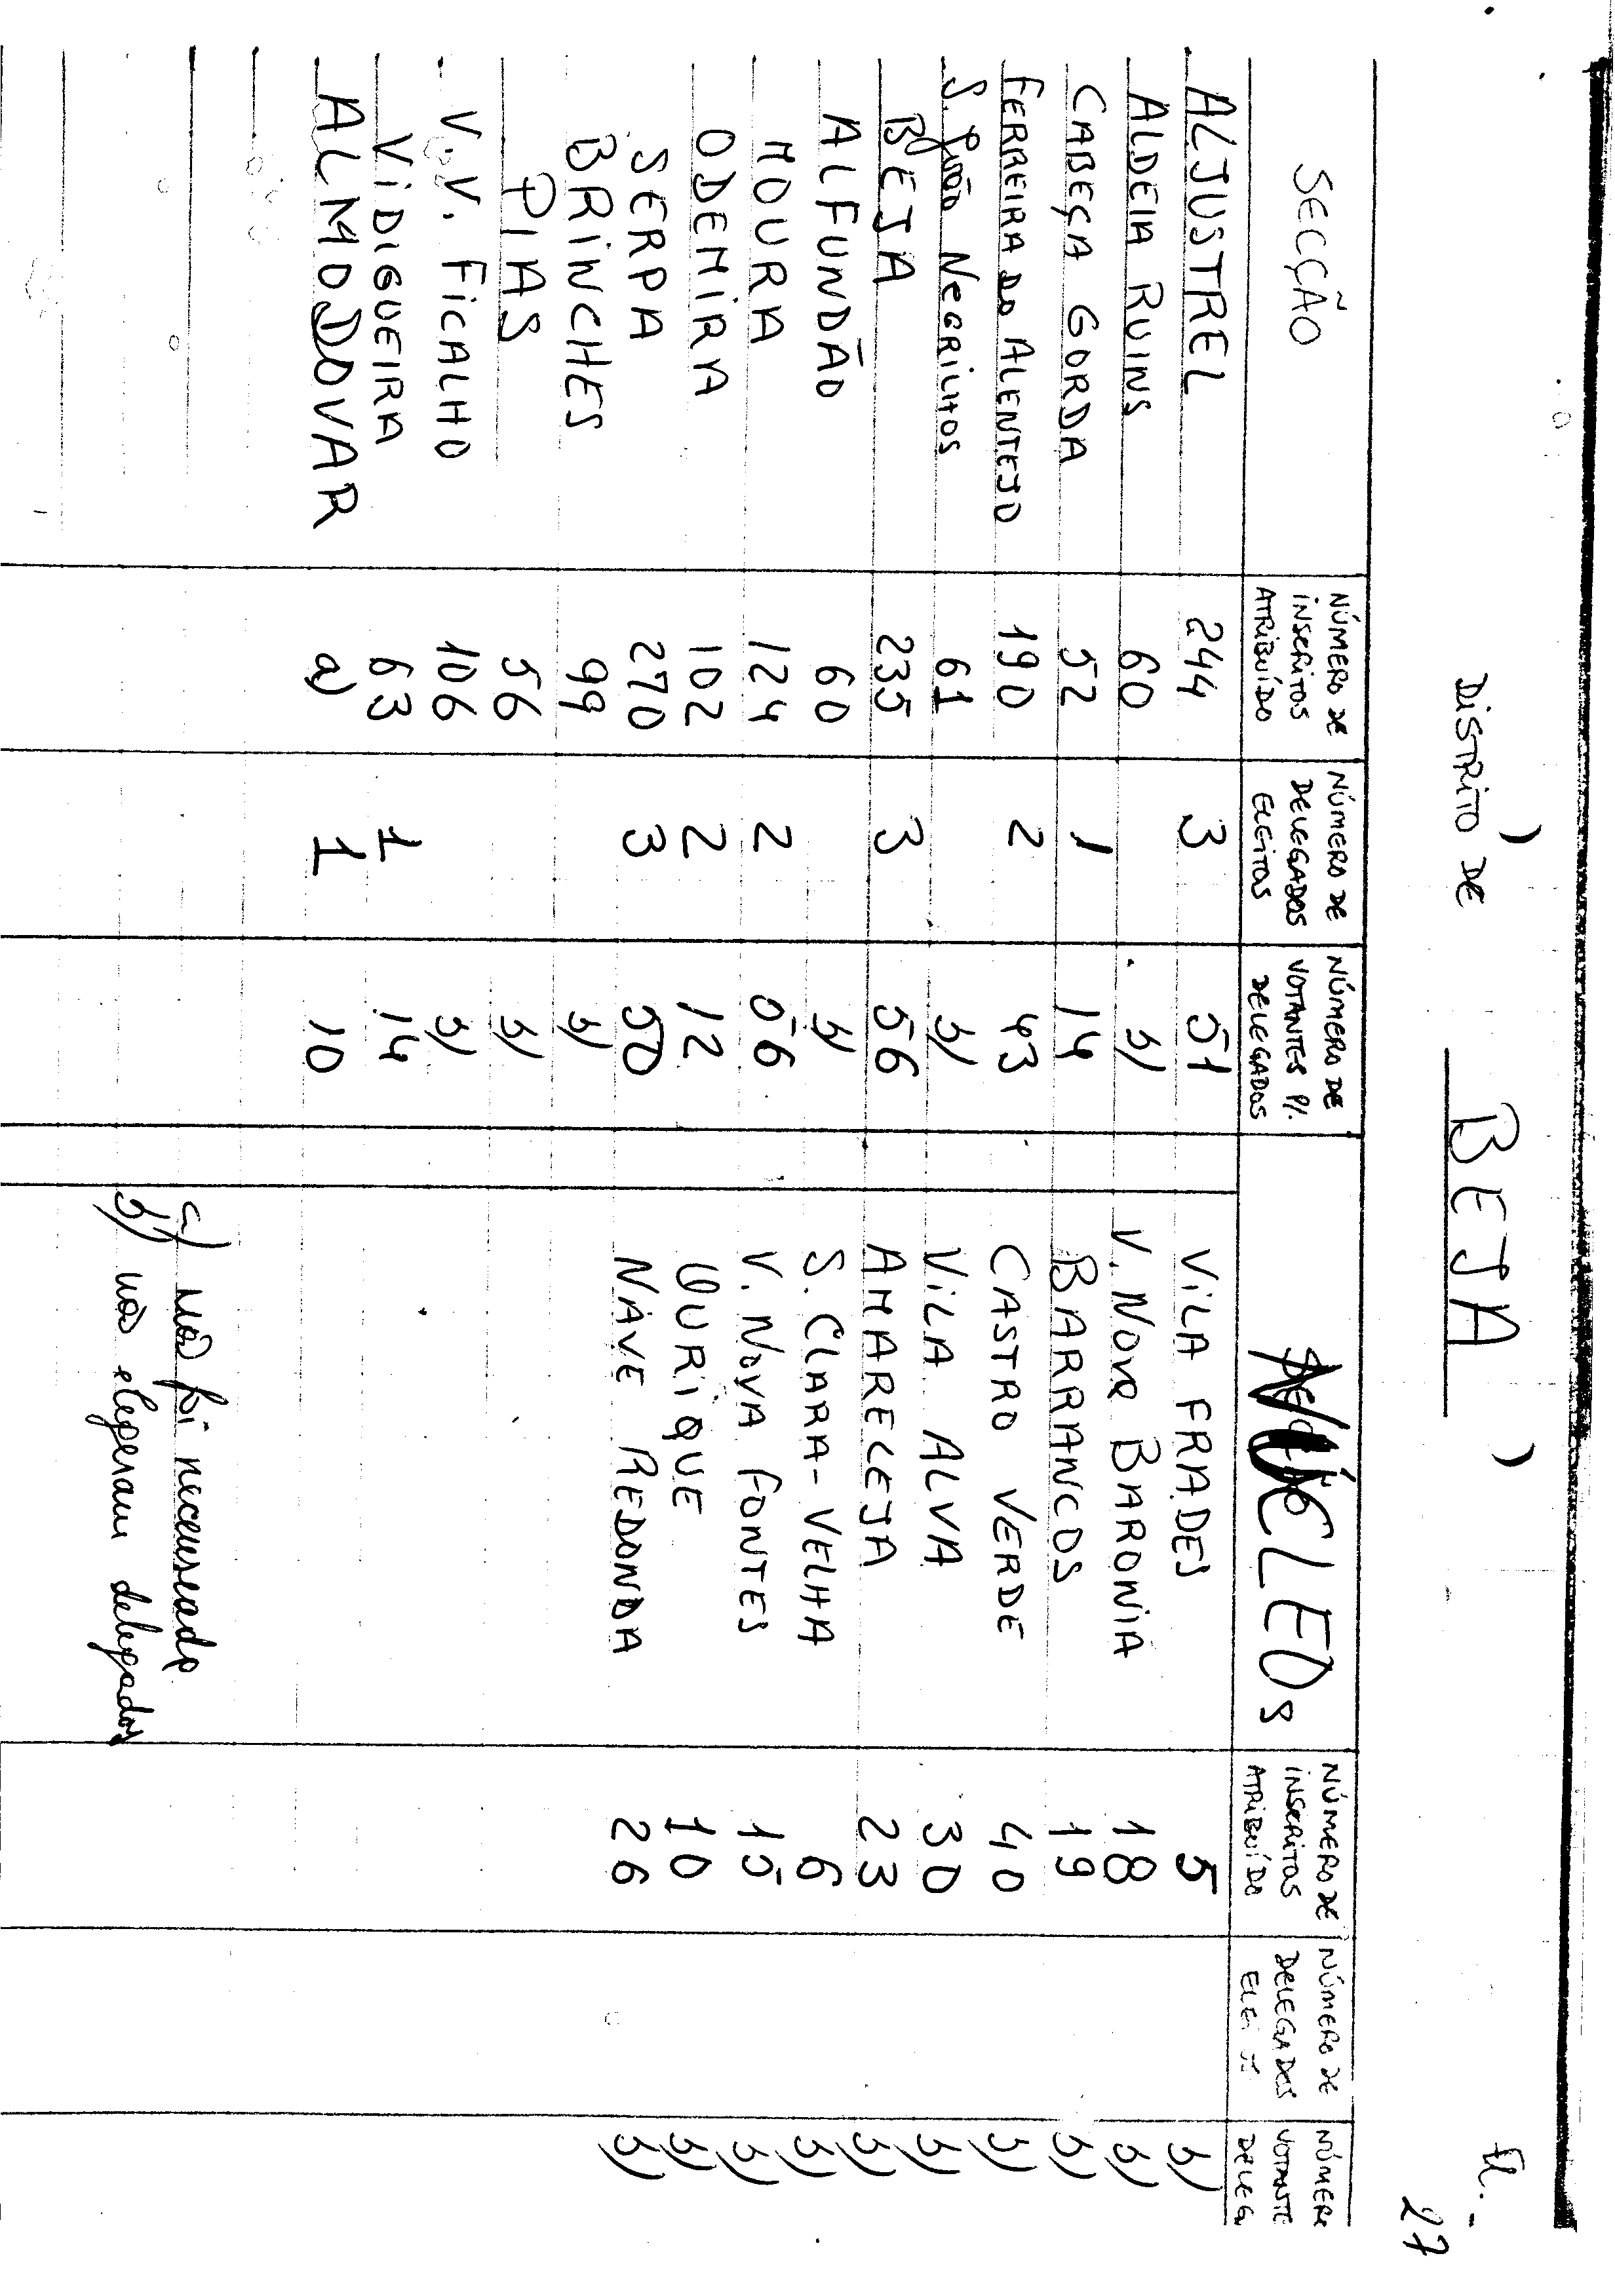 Fl. - 27
DISTRITO DE BEJA
SECÇÃO NÚMERO DE INSCRITOS ATRIBUÍDO NÚMERO DE DELEGADOS ELEITOS NÚMERO DE VOTANTES P/. DELEGADOS NÚCLEOS NÚMERO DE INSCRITOS ATRIBUÍDO NÚMERO DE DELEGADOS NÚMER VOTANTE DELEG
ALJUSTREL 244 3 51 VILA FRADES 5 b)
ALDEIA RUINS 60 b) V. NOVA BARONIA 18 b)
CABEÇA GORDA 52 1 14 BARRANCOS 19 b)
FERREIRA DO ALENTEJO 190 2 43 CASTRO VERDE 40 b)
S. João NEGRILHOS 61 b) VILA ALVA 30 b)
BEJA 235 3 56 AMARELEJA 23 b)
ALFUNDÃO 60 b) S. CLARA-VELHA 6 b)
MOURA 124 2 56 V. NOVA FONTES 15 b)
ODEMIRA 102 2 12 OURIQUE 10 b)
SERPA 270 3 50 NAVE REDONDA 26 b)
BRINCHES 99 b)
PIAS 56 b)
V.V. FICALHO 106 b)
VIDIGUEIRA 63 1 14
ALMODOVAR a) 1 10
a) Não foi recenseado
b) não elegeram delegados